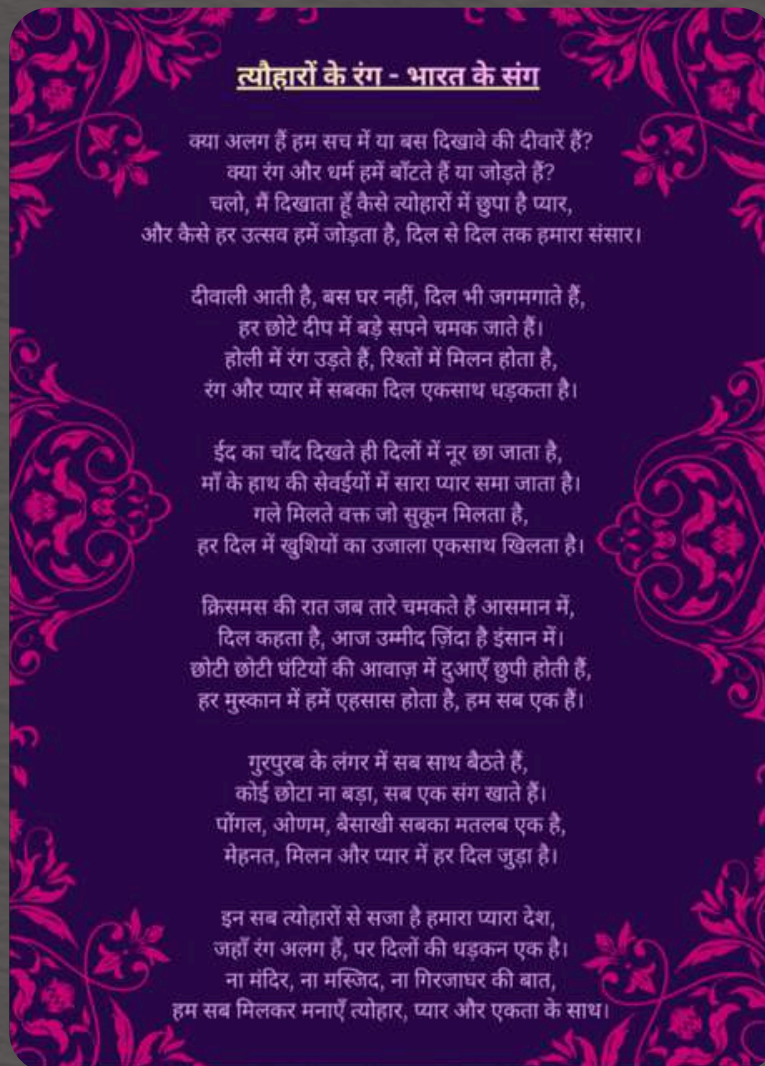 त्यौहारों के रंग - भारत के संग
क्या अलग हैं हम सच में या बस दिखावे की दीवारें हैं?
क्या रंग और धर्म हमें बाँटते हैं या जोड़ते हैं?
चलो, मैं दिखाता हूँ कैसे त्योहारों में छुपा है प्यार,
और कैसे हर उत्सव हमें जोड़ता है, दिल से दिल तक हमारा संसार।
दीवाली आती है, बस घर नहीं, दिल भी जगमगाते हैं,
हर छोटे दीप में बड़े सपने चमक जाते हैं।
होली में रंग उड़ते हैं, रिश्तों में मिलन होता है,
रंग और प्यार में सबका दिल एकसाथ धड़कता है।
ईद का चाँद दिखते ही दिलों में नूर छा जाता है,
माँ के हाथ की सेवईयों में सारा प्यार समा जाता है।
गले मिलते वक्त जो सुकून मिलता है,
हर दिल में खुशियों का उजाला एकसाथ खिलता है।
क्रिसमस की रात जब तारे चमकते हैं आसमान में,
दिल कहता है, आज उम्मीद ज़िंदा है इंसान में।
छोटी छोटी घंटियों की आवाज़ में दुआएँ छुपी होती हैं,
हर मुस्कान में हमें एहसास होता है, हम सब एक हैं।
गुरपुरब के लंगर में सब साथ बैठते हैं,
कोई छोटा ना बड़ा, सब एक संग खाते हैं।
पोंगल, ओणम, बैसाखी सबका मतलब एक है,
मेहनत, मिलन और प्यार में हर दिल जुड़ा है।
इन सब त्योहारों से सजा है हमारा प्यारा देश,
जहाँ रंग अलग हैं, पर दिलों की धड़कन एक है।
ना मंदिर, ना मस्जिद, ना गिरजाघर की बात,
हम सब मिलकर मनाएँ त्योहार, प्यार और एकता के साथ।